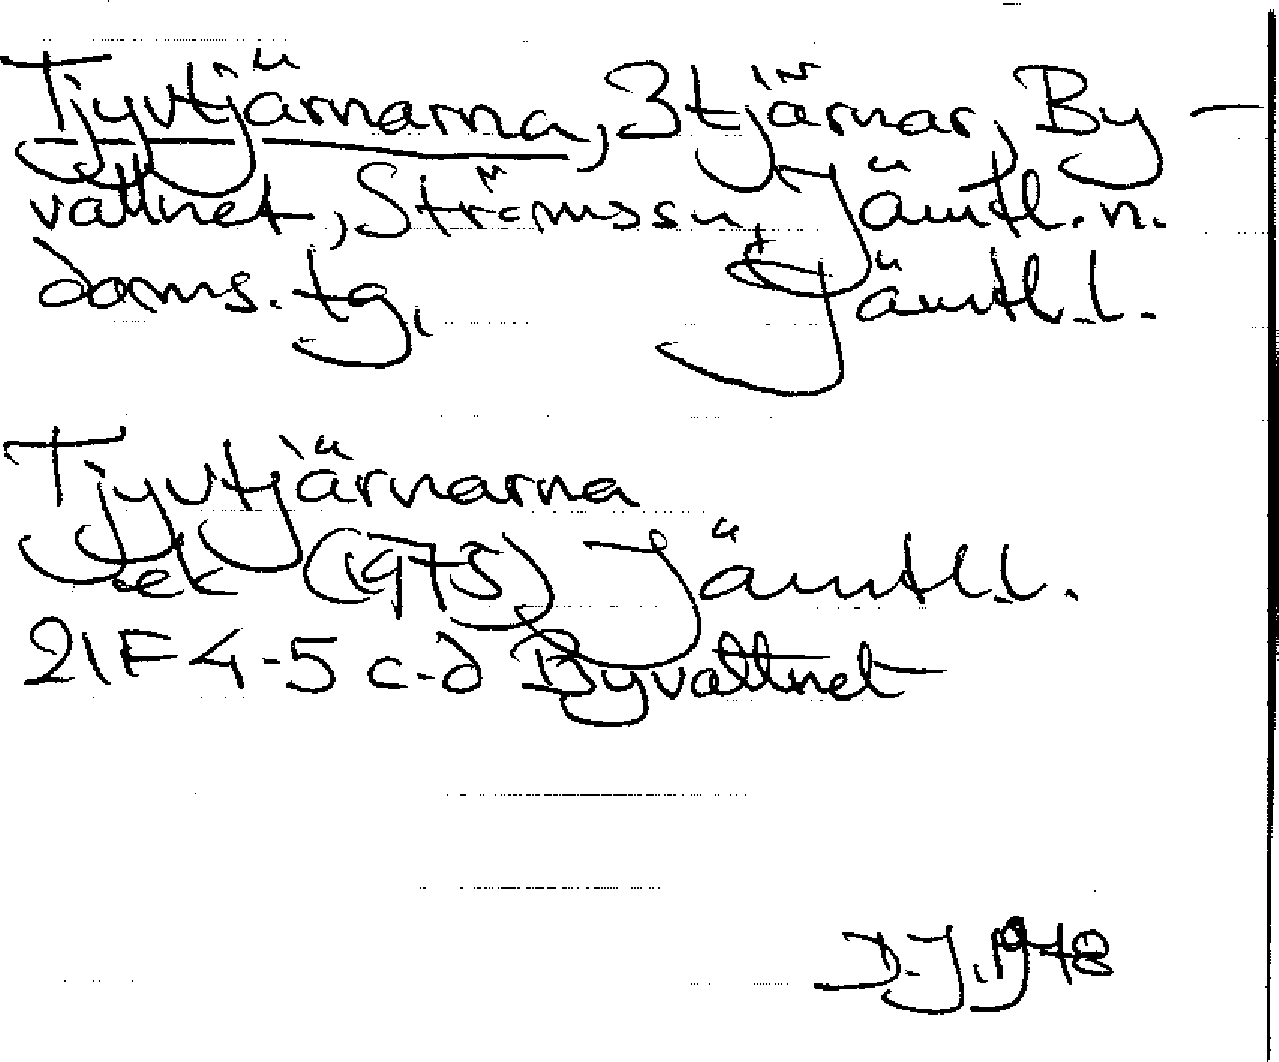 Tjyvtjärnarna, 3 tjärnar, By-
vattnet, Ströms sn, Jämtl. n.
doms. tg, Jämtl. l.
Tjyvtjärnarna
ek (1975) Jämtl. l.
21F 4-5 c-d Byvattnet
D.J. 1978